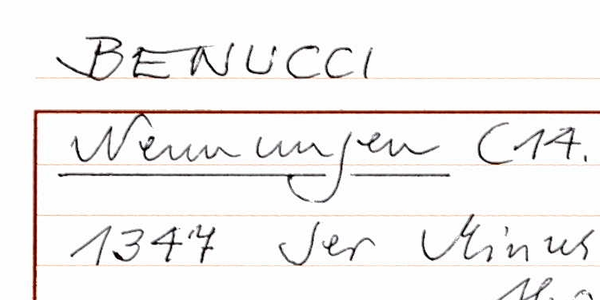 BENUCCI
Nennungen (14.
1347 Ser Minus